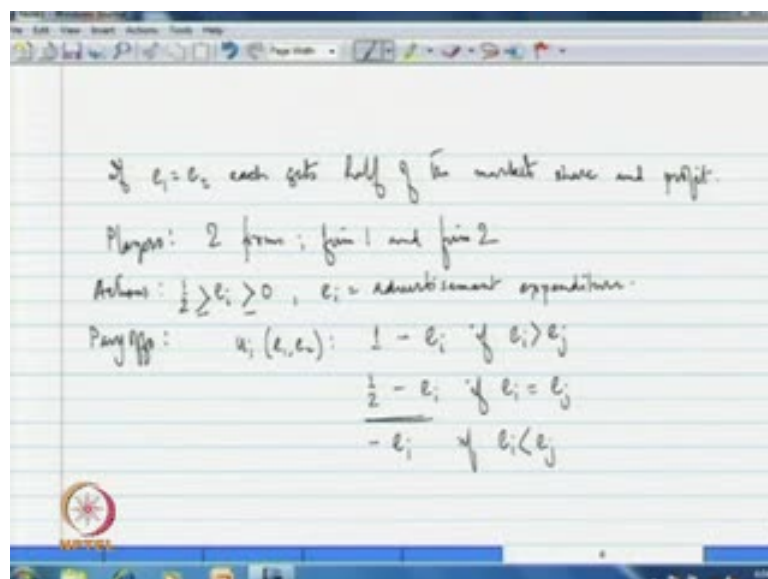 If e₁ = e₂ each gets half of the market share and profit.
Players: 2 firms ; firm 1 and firm 2
Actions: 1/2 ≥ eᵢ ≥ 0 , eᵢ = advertisement expenditure.
Payoffs: uᵢ (e₁, e₂): 1 - eᵢ if eᵢ > eⱼ
1/2 - eᵢ if eᵢ = eⱼ
- eᵢ if eᵢ < eⱼ
NPTEL